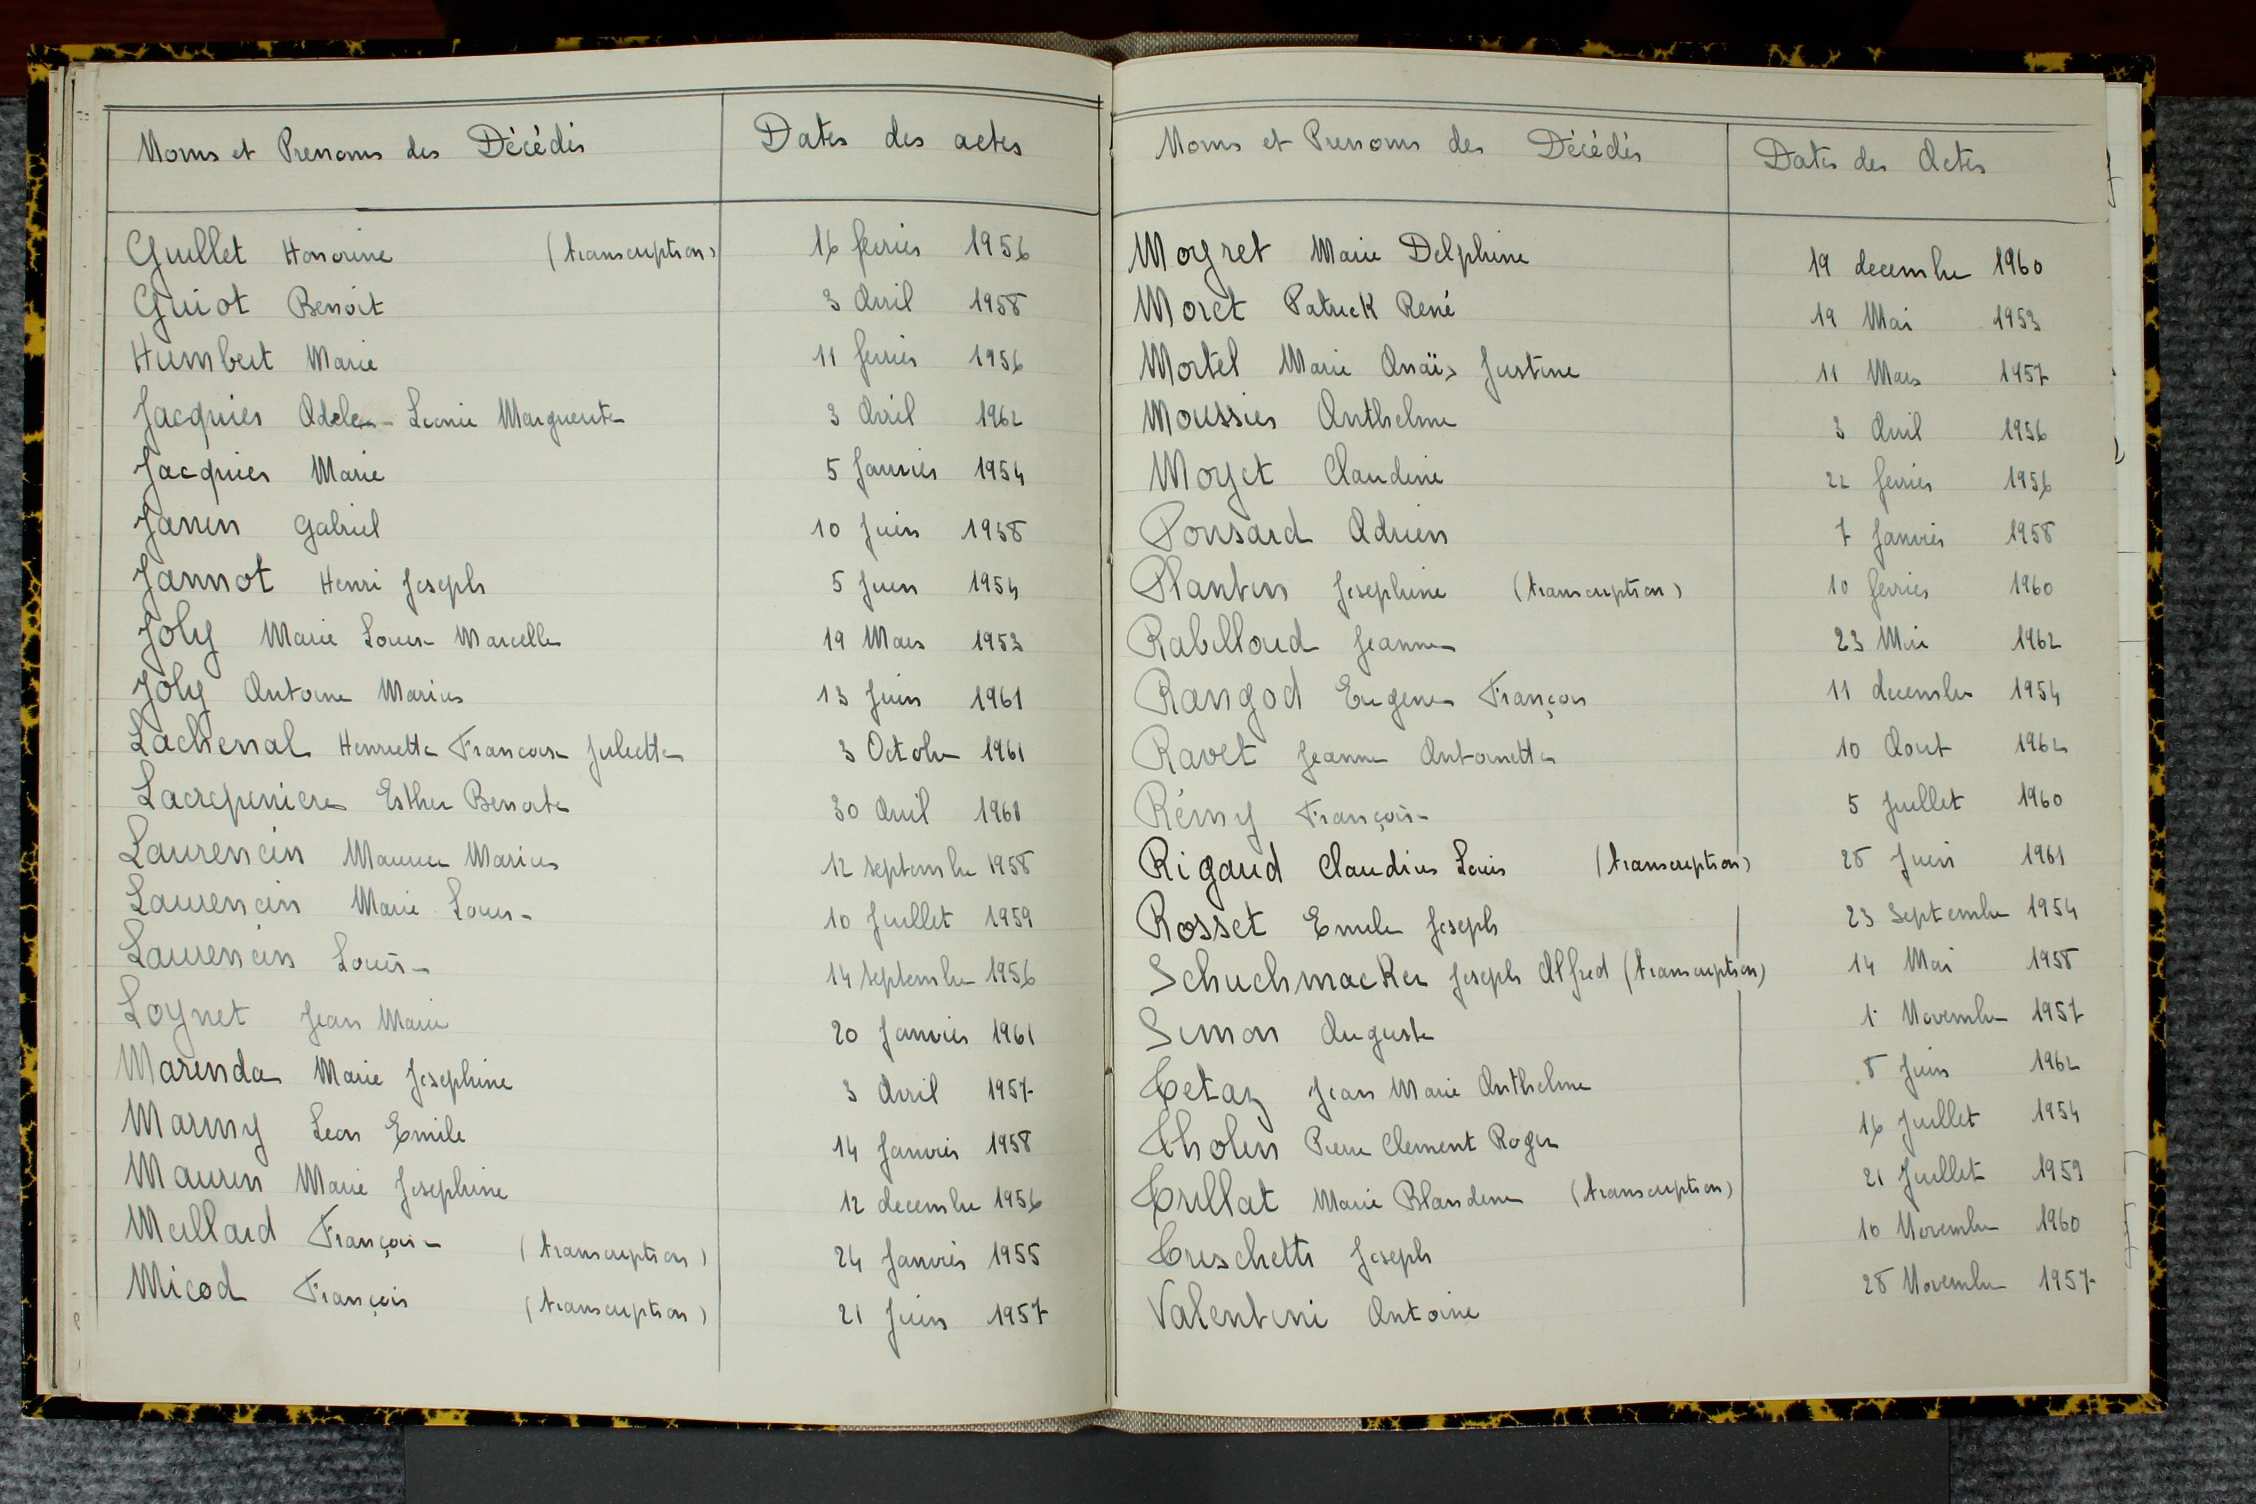 Noms et Prenoms des Décédés Dates des actes
Guillet Honorine (transcription) 16 fevrier 1956
Guiot Benoit 3 Avril 1958
Humbert Marie 11 fevrier 1956
Jacquier Adele Leonie Marguerite 3 Avril 1962
Jacquier Marie 5 Janvier 1954
Janin Gabriel 10 Juin 1958
Jannot Henri Joseph 5 Juin 1954
Joly Marie Louise Marcelle 19 Mars 1953
Joly Antoine Marius 13 Juin 1961
Lachenal Henriette Francoise Juliette 3 Octobre 1961
Lacrepiniere Esther Benoite 30 Avril 1961
Laurencin Maurice Marius 12 septembre 1958
Laurencin Marie Louise 10 Juillet 1959
Laurencin Louise 14 septembre 1956
Loynet Jean Marie 20 Janvier 1961
Marinda Marie Josephine 3 Avril 1957
Marmy Leon Emile 14 Janvier 1958
Maurin Marie Josephine 12 decembre 1956
Millard Françoise (transcription) 24 Janvier 1955
Micod François (transcription) 21 Juin 1957
Noms et Prenoms des Décédés Dates des Actes
Moyret Marie Delphine 19 decembre 1960
Moret Patrick René 19 Mai 1953
Mortel Marie Anaïs Justine 11 Mars 1957
Moussier Anthelme 3 Avril 1956
Moyet Claudine 22 fevrier 1956
Ponsard Adrien 7 Janvier 1958
Plantin Josephine (transcription) 10 fevrier 1960
Rabilloud Jeanne 23 Mai 1962
Rangod Eugene François 11 decembre 1954
Ravet Jeanne Antoinette 10 Aout 1962
Rémy Françoise 5 Juillet 1960
Rigaud Claudius Louis (transcription) 28 Juin 1961
Rosset Emile Joseph 23 Septembre 1954
Schuchmacker Joseph Alfred (transcription) 14 Mai 1958
Simon Auguste 1 Novembre 1957
Tetaz Jean Marie Anthelme 8 Juin 1962
Tholin Pierre Clement Roger 16 Juillet 1954
Trillat Marie Blandine (transcription) 21 Juillet 1959
Trischetti Joseph 10 Novembre 1960
Valentini Antoine 28 Novembre 1957